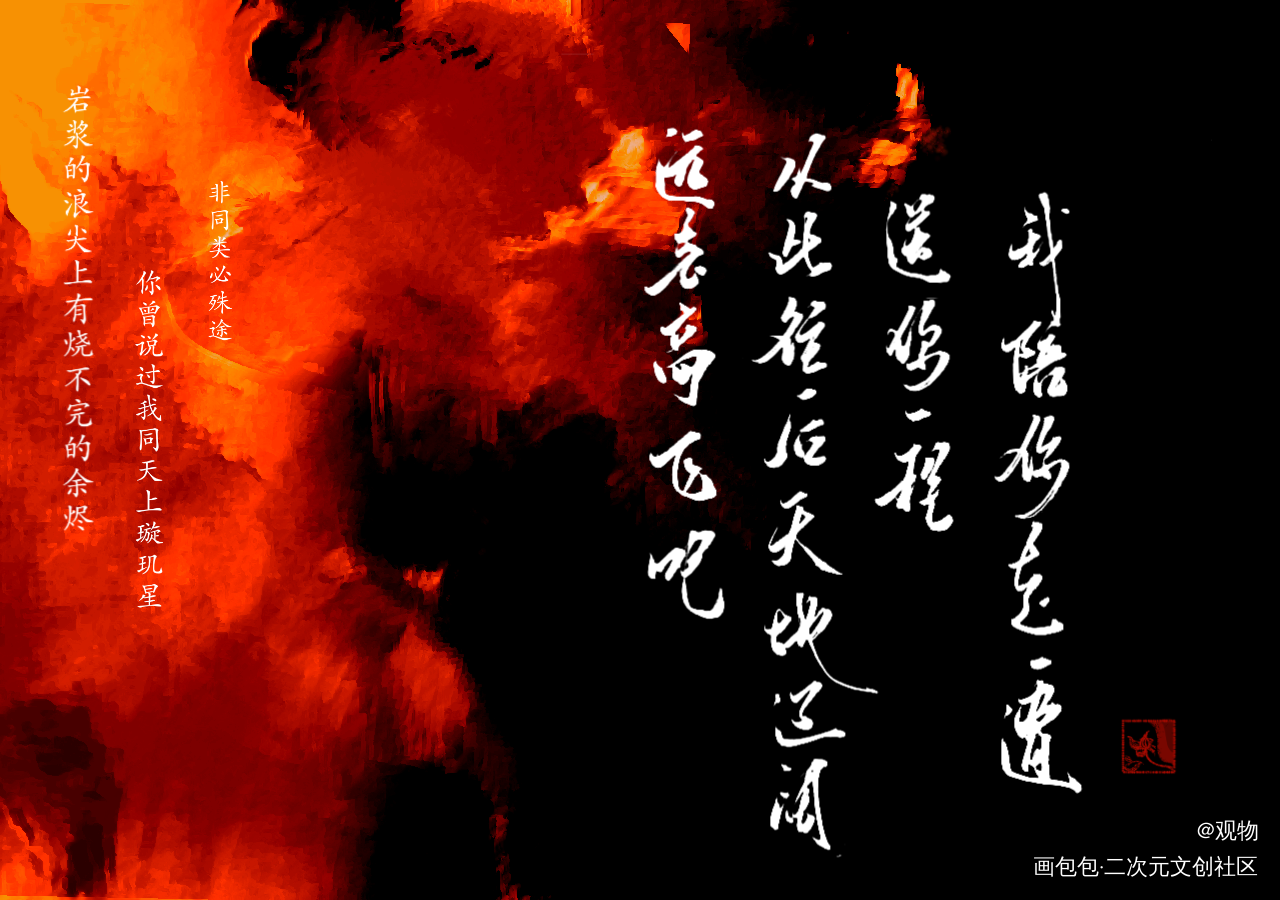 我陪你走一遭
送你一程
从此往后天地辽阔
远走高飞吧
非同类必殊途
你曾说过我同天上璇玑星
岩浆的浪尖上有烧不完的余烬
@观物
画包包·二次元文创社区